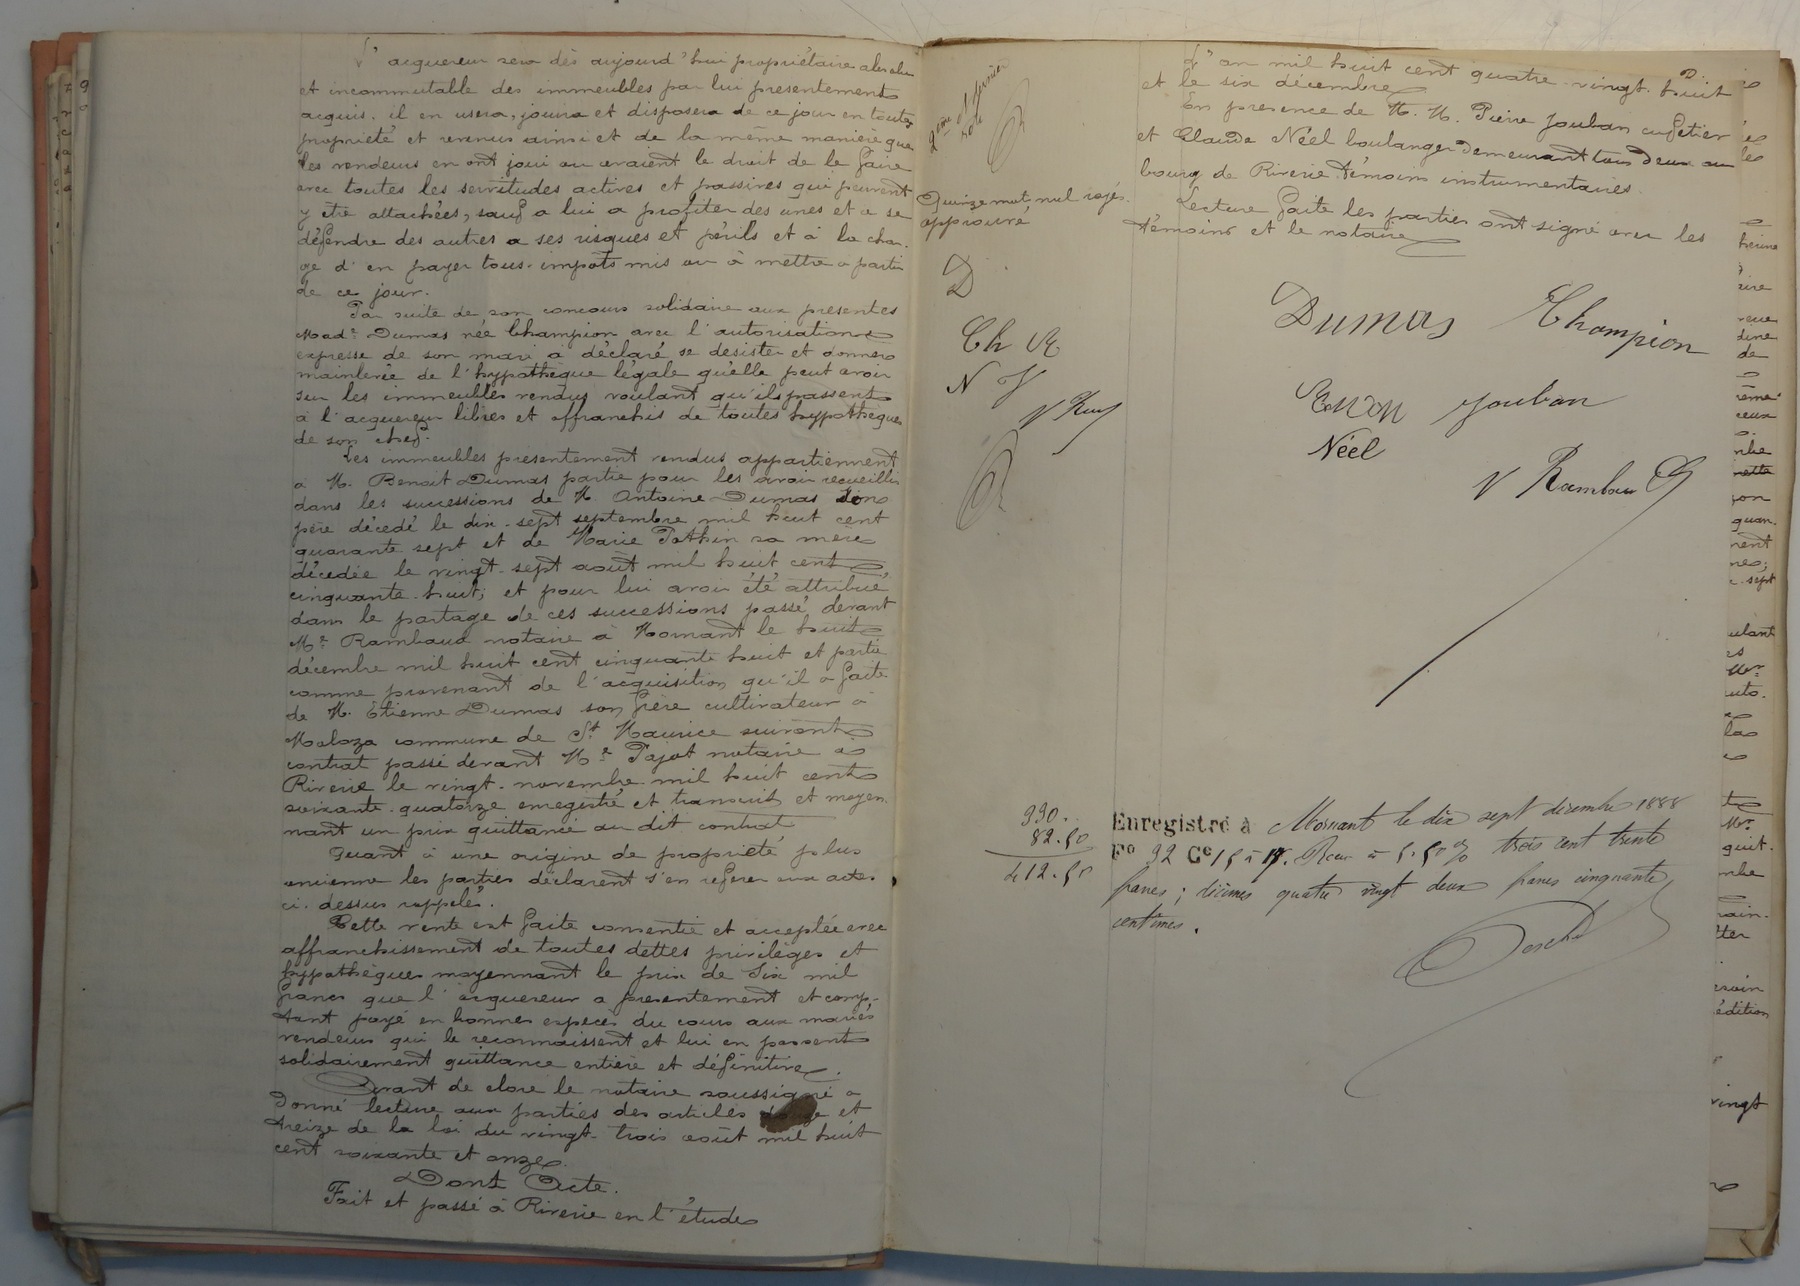 L'acquereur sera dès aujourd'hui propriétaire absolu
et incommutable des immeubles par lui presentement
acquis. il en usera, jouira et disposera de ce jour en toute
propriété et revenus ainsi et de la même manière que
les vendeurs en ont joui ou avaient le droit de le faire
avec toutes les servitudes actives et passives qui peuvent
y être attachées, sauf a lui a profiter des unes et a se
défendre des autres a ses risques et périls et à la char-
ge d'en payer tous impôts mis ou à mettre a partir
de ce jour.
Par suite de son concours solidaire aux presentes
Made Dumas née Champion avec l'autorisation
expresse de son mari a déclaré se desister et donner
mainlevée de l'hypothèque légale qu'elle peut avoir
sur les immeubles vendus voulant qu'ils passent
à l'acquereur libres et affranchis de toutes hypothèques
de son chef.
Les immeubles presentement vendus appartiennent
a M. Benoit Dumas partie pour les avoir recueillis
dans les successions de M Antoine Dumas son
père décédé le dix-sept septembre mil huit cent
quarante sept et de Marie Pathin sa mère
décédée le vingt-sept août mil huit cent
cinquante-huit; et pour lui avoir été attribué
dans le partage de ces successions passé devant
Me Rambaud notaire à Mornant le huit
décembre mil huit cent cinquante huit et partie
comme provenant de l'acquisition qu'il a faite
de M. Etienne Dumas son frère cultivateur à
Maloza commune de St Maurice suivant
contrat passé devant Me Pajot notaire à
Riverie le vingt-novembre mil huit cent
soixante-quatorze enregistré et transcrit et moyen
nant un prix quittancé au dit contrat
Quant à une origine de propriété plus
ancienne les parties déclarent s'en referer aux actes
ci-dessus rappelés.
Cette vente est faite consentie et acceptée avec
affranchissement de toutes dettes privilèges et
hypothèques moyennant le prix de Six mil
francs que l'acquereur a presentement et comp-
tant payé en bonnes espèces du cours aux mariés
vendeurs qui le reconnaissent et lui en passent
solidairement quittance entière et définitive.
Avant de clore le notaire soussigné a
donné lecture aux parties des articles douze et
treize de la loi du vingt-trois août mil huit
cent soixante et onze.
Dont Acte.
Fait et passé à Riverie en l'étude
2eme et dernier
rôle
Quinze mots nul rayés
approuvé
D
Ch
N J
V Ram
L'an mil huit cent quatre-vingt-huit
et le six décembre
En presence de M. M. Pierre Jouban cafetier
et Claude Néel boulanger demeurant tous deux au
bourg de Riverie témoins instrumentaires.
Lecture faite les parties ont signé avec les
témoins et le notaire
Dumas Champion
Jouban
Néel
V Rambaud
330..
82.50
412.50
Enregistré à Mornant le dix sept décembre 1888
Fo 92 Ce 15 à 17. Reçu à 5.50% trois cent trente
francs; décimes quatre vingt deux francs cinquante
centimes.